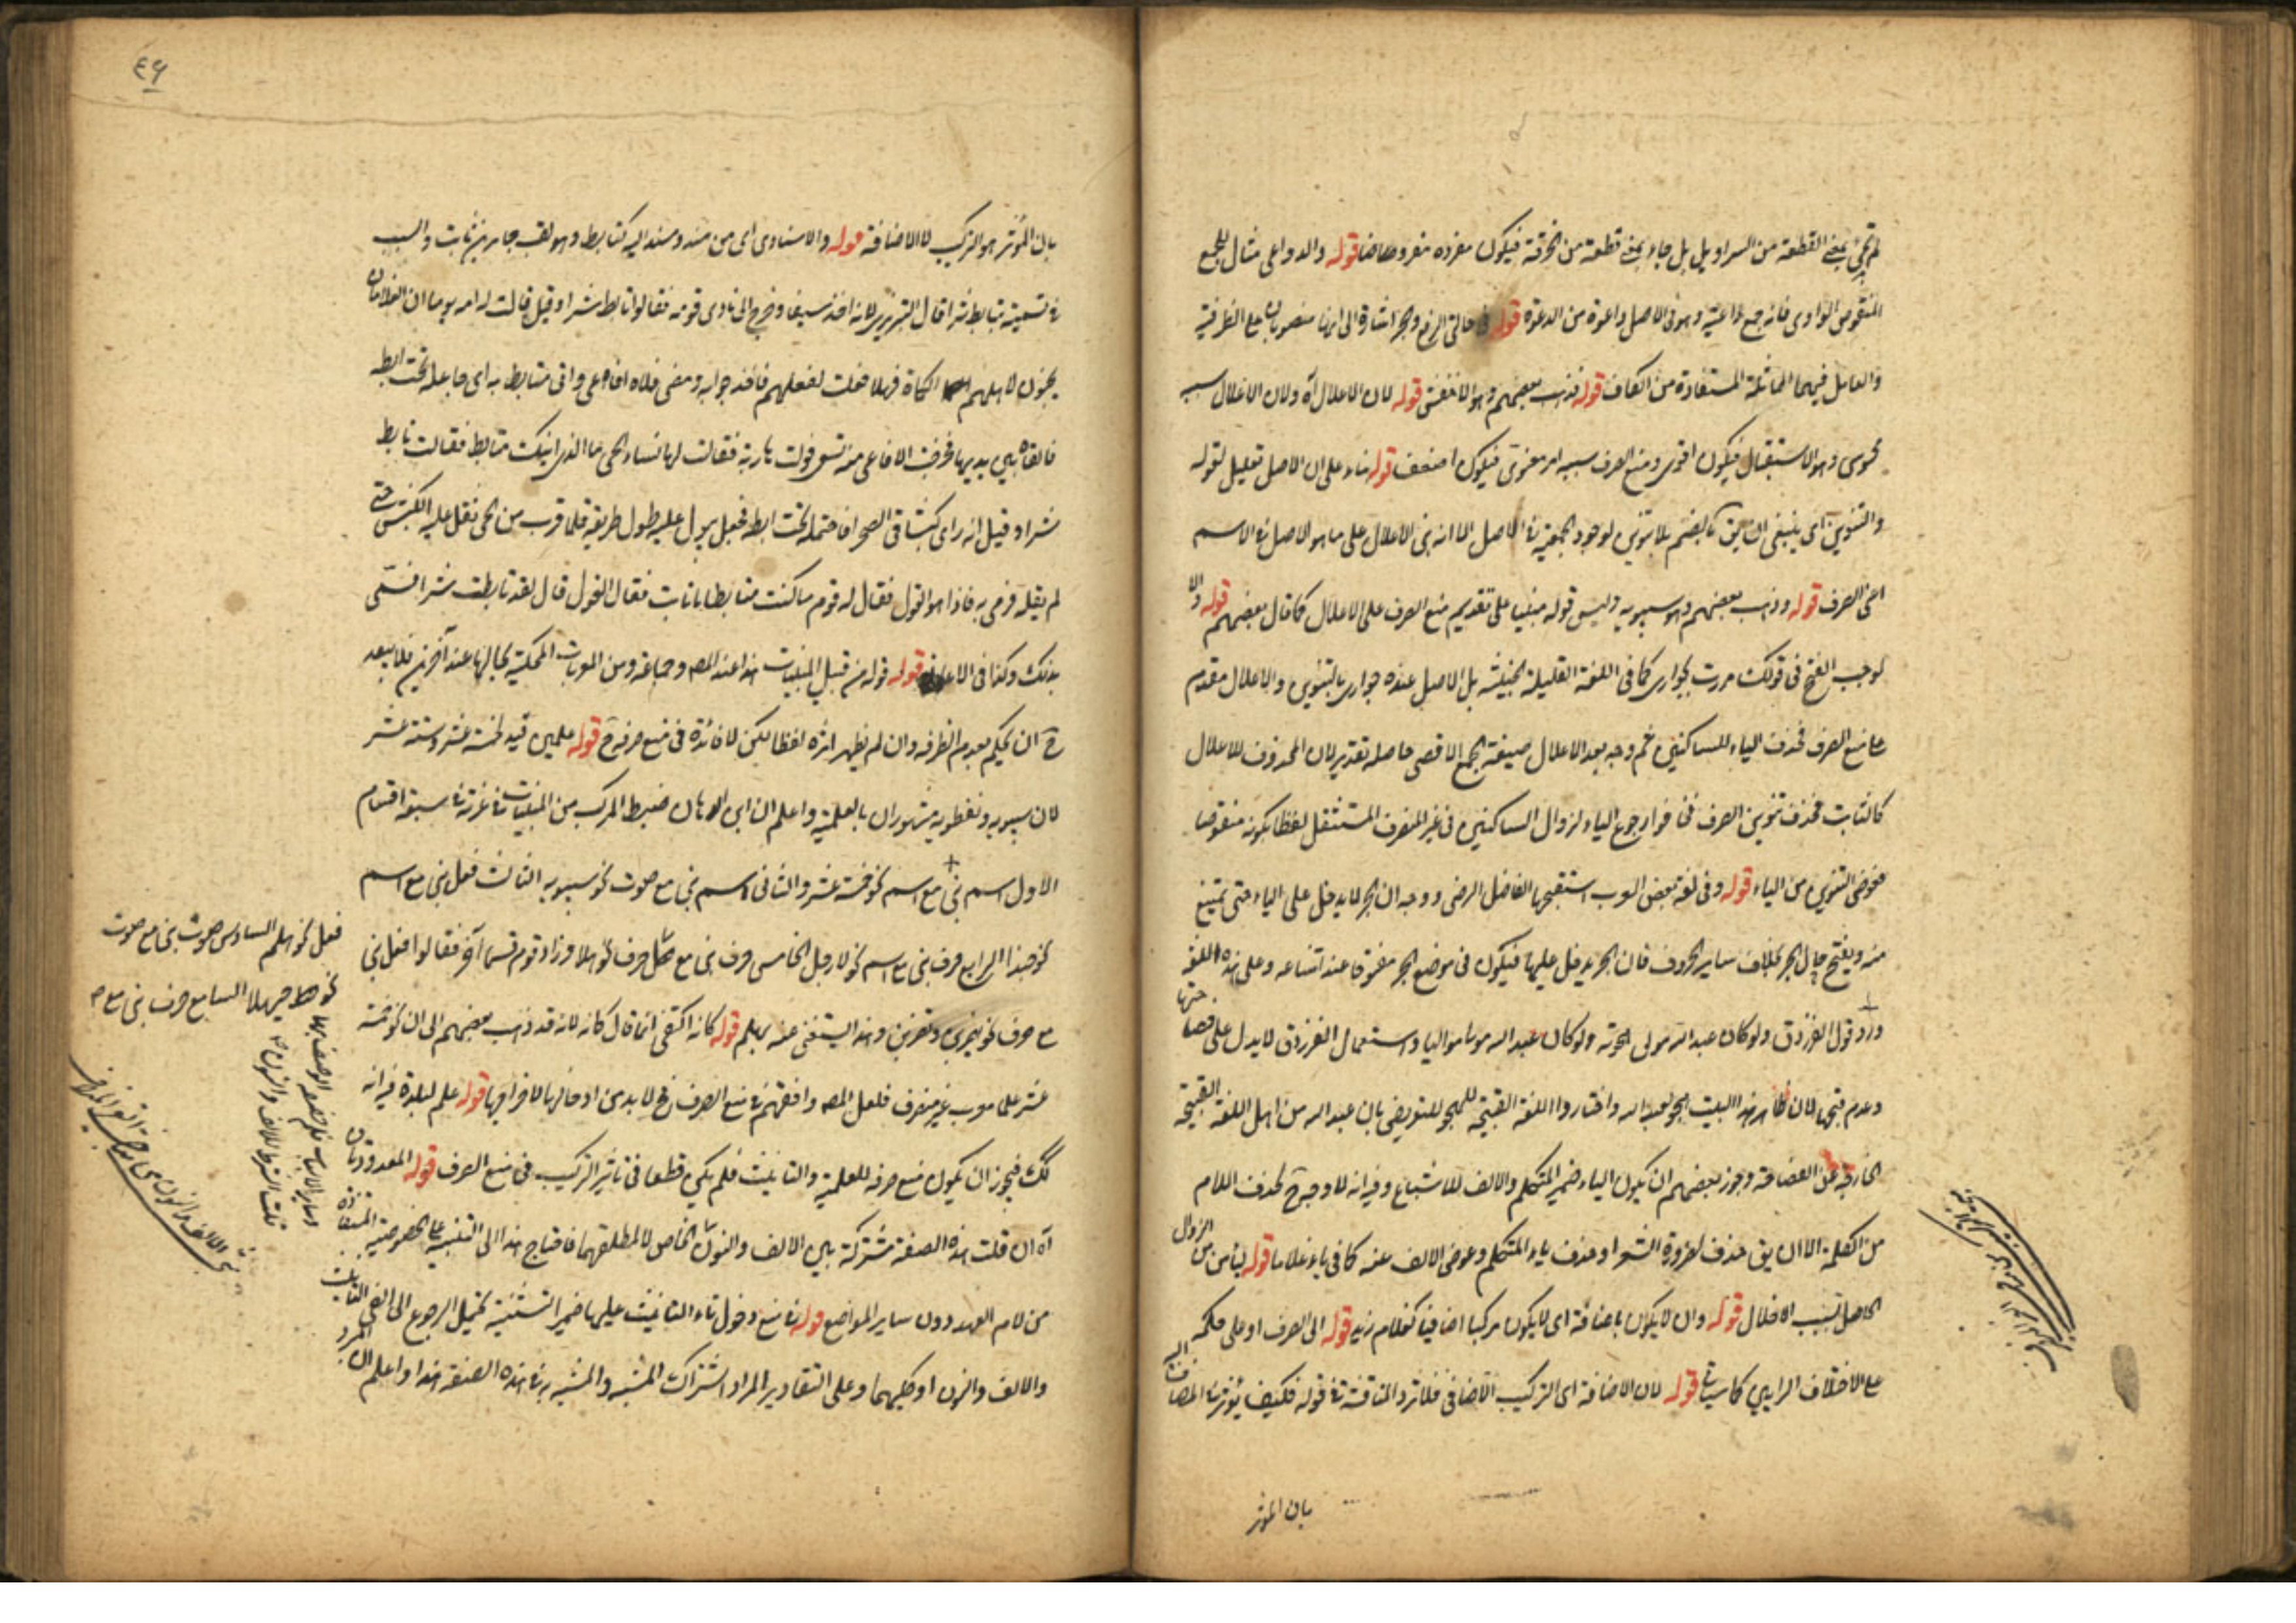 لم تجئ بمعنى القطعة من السراويل بل جاء بمعنى قطعة من الخرقة فيكون مفرده مفروضا قوله والدواعى مثال للجمع
المنقوص الواوى فانه جمع داعية وهو فى الاصل داعوة من الدعوة قوله فى حالتى الرفع والجر اشارة الى انهما منصوبان على الظرفية
والعامل فيهما المماثلة المستفادة من الكاف قوله فذهب بعضهم وهو الاخفش قوله لان الاعلال آه ولان الاعلال سببه
محسوس وهو الاستقبال فيكون اقوى ومنع الصرف سببه امر معنوى فيكون اضعف قوله بناء على ان الاصل تعليل لقوله
والتنوين اى ينبغى ان يق بالضم بلا تنوين لوجود الجمعية فى الاصل الا انه بنى الاعلال على ما هو الاصل فى الاسم
اعنى الصرف قوله وذهب بعضهم وهو سيبويه وليس قوله مبنيا على تقديم منع الصرف على الاعلال كما قال بعضهم قوله والا
لوجب الفتح فى قولك مررت بجوارى كما فى اللغة القليلة الخبيثة بل الاصل عنده جوارى بالتنوين والاعلال مقدم
على منع الصرف فحذف الياء للساكنين ثم وجد بعد الاعلال صيغة الجمع الاقصى حاصلة تقديرا لان المحذوف للاعلال
كالثابت فحذف تنوين الصرف فخافوا رجوع الياء لزوال الساكنين فى غير المنصرف المستثقل لفظا بكونه منقوصا
فعوض التنوين من الياء قوله وفى لغة بعض العرب استقبحها الفاضل الرضى ووجه ان الجر لا يدخل على الياء حتى يمتنع
منه ويفتح حال الجر بخلاف ساير الحروف فان الجر يدخل عليها فيكون فى موضع الجر مفتوحا عند امتناعه وعلى هذه اللغة
ورد قول الفرزدق ولو كان عبد الله مولى هجوته ولو كان عبد الله مولى مواليا واستعمال الفرزدق لا يدل على فصاحتها
وعدم قبحها لان هذا البيت هجو لعبد الله واختاروا اللغة القبيحة للهجو للتعريض بان عبد الله من اهل اللغة القبيحة
الخارجة عن الفصاحة وجوز بعضهم ان يكون الياء ضمير المتكلم والالف للاشباع وفيه انه لا وجه ح لحذف اللام
من الكلمة الا ان يق حذف لضرورة الشعر او حذف ياء المتكلم وعوض الالف عنه كما فى ياء غلاما قوله ليأمن من الزوال
الحاصل بسبب الاخلال قوله وان لا يكون باضافة اى لا يكون مركبا اضافيا كغلام زيد قوله الى الصرف او على حكمه
على الاختلاف الرايين كما سياتى قوله لان الاضافة اى التركيب الاضافى فلا ترد المناقشة فى قوله فكيف يؤثر فى المضاف اليه
بان المؤثر
٤٩
بان المؤثر هو التركيب لا الاضافة قوله والاسنادى اى من مسند ومسند اليه كتابط وهو لقب جابر بن ثابت والسبب
فى تسميته بتابط شرا قال التبريزى لانه اخذ سيفا وخرج الى نادى قومه فقالوا تابط شرا وقيل قالت له امه يوما ان الغلمان
يجنون لاهلهم الكماة فهلا فعلت كفعلهم فاخذ جرابه ومضى فملاه افاعى واتى متابطا به اى جاعله تحت ابطه
فالقاه بين يديها فخرجت الافاعى منه تسعى فولت هاربة فقالت لها نساء الحى ما الذى ابنك متابط فقالت تابط
شرا وقيل انه راى كبشا فى الصحراء فاحتمله تحت ابطه فجعل يبول عليه طول طريقه فلما قرب من الحى ثقل عليه الكبش حتى
لم يقله فرمى به فاذا هو الغول فقال له قوم ما كنت متابطا يا ثابت فقال الغول قال لقد تابطت شرا فسمى
بذلك وكذا فى الاغانى قوله قوله من قبيل المبنيات هذا عند المص وجماعة ومن المعربات المحكية بحالها عند آخرين فلا يبعد
ح ان يحكم بعدم الظرفه وان لم يظهر اثره لفظا لكن لا فائدة فى منع صرفه ح قوله علمين قيد لخمسة عشر وستة عشر
لان سيبويه ونفطويه مشهوران بالعلمية واعلم ان ابن الدهان ضبط المركب من المبنيات فى غرته فى سبعة اقسام
الاول اسم بنى مع اسم نحو خمسة عشر والثانى اسم بنى مع صوت نحو سيبويه الثالث فعل بنى مع اسم
نحو حبذا الرابع حرف بنى مع اسم نحو لا رجل الخامس حرف بنى مع حرف نحو هلا وزاد قوم قسما آخر فقالوا فعل بنى
مع حرف نحو يضربن وتضربن وهذا يستغنى عنه بهلم قوله كانه اكتفى انما قال كانه لانه قد ذهب بعضهم الى ان نحو خمسة
عشر علما معرب غير منصرف فلعل المص وافقهم فى منع الصرف فح لا بد من ادخالها لا اخراجها قوله علم لبلدة فيه انه
لك فيجوز ان يكون منع صرفه للعلمية والتانيث فلم يكن قطعا فى تاثير التركيب فى منع الصرف قوله المعدودتان
آه ان قلت هذه الصفة مشتركة بين الالف والنون الخاص لا لمطلقهما فاحتاج هذا الى التنبيه على الخصوصية المستفادة
من لام العهد دون ساير المواضع قوله فى منع دخول تاء التانيث عليها ضمير التثنية يحتمل الرجوع الى الفى التانيث
والالف والنون او كليهما وعلى التقادير المراد اشتراك المشبه والمشبه به فى هذه الصفة هذا واعلم ان المبرد
فعل نحو هلم السادس صوت بنى مع صوت
نحو حيهلا السابع حرف بنى مع